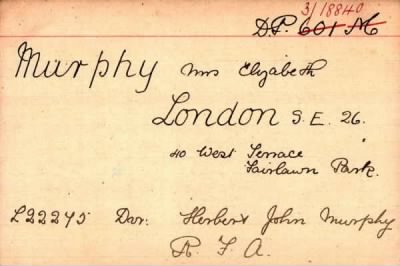 3/18840
D.P. 601 M
Murphy Mrs Elizabeth
London S.E. 26.
40 West Terrace
Fairlawn Park.
L22275 Dvr: Herbert John Murphy
R. F. A.